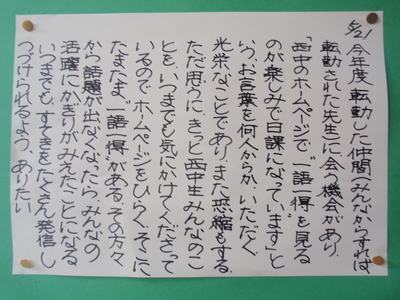 5/21 今年度、転動した仲間、みんなからすれば、
転動された先生に会う機会があり、
「西中のホームページで“一語一得”を見る
のが楽しみで日課になっています」と
いう、お言葉を何人からか、いただく。
光栄なことであり、また恐縮もする。
ただ思うに、きっと西中生みんなのこ
とを、いつまでも気にかけてくださって
いるので、ホームページをひらく。そこに
たまたま“一語一得”がある。その方々
から話題が出なくなったら、みんなの
活躍にかぎりがみえたことになる
いつまでも、すてきをたくさん発信し
つづけられるよう、ありたい